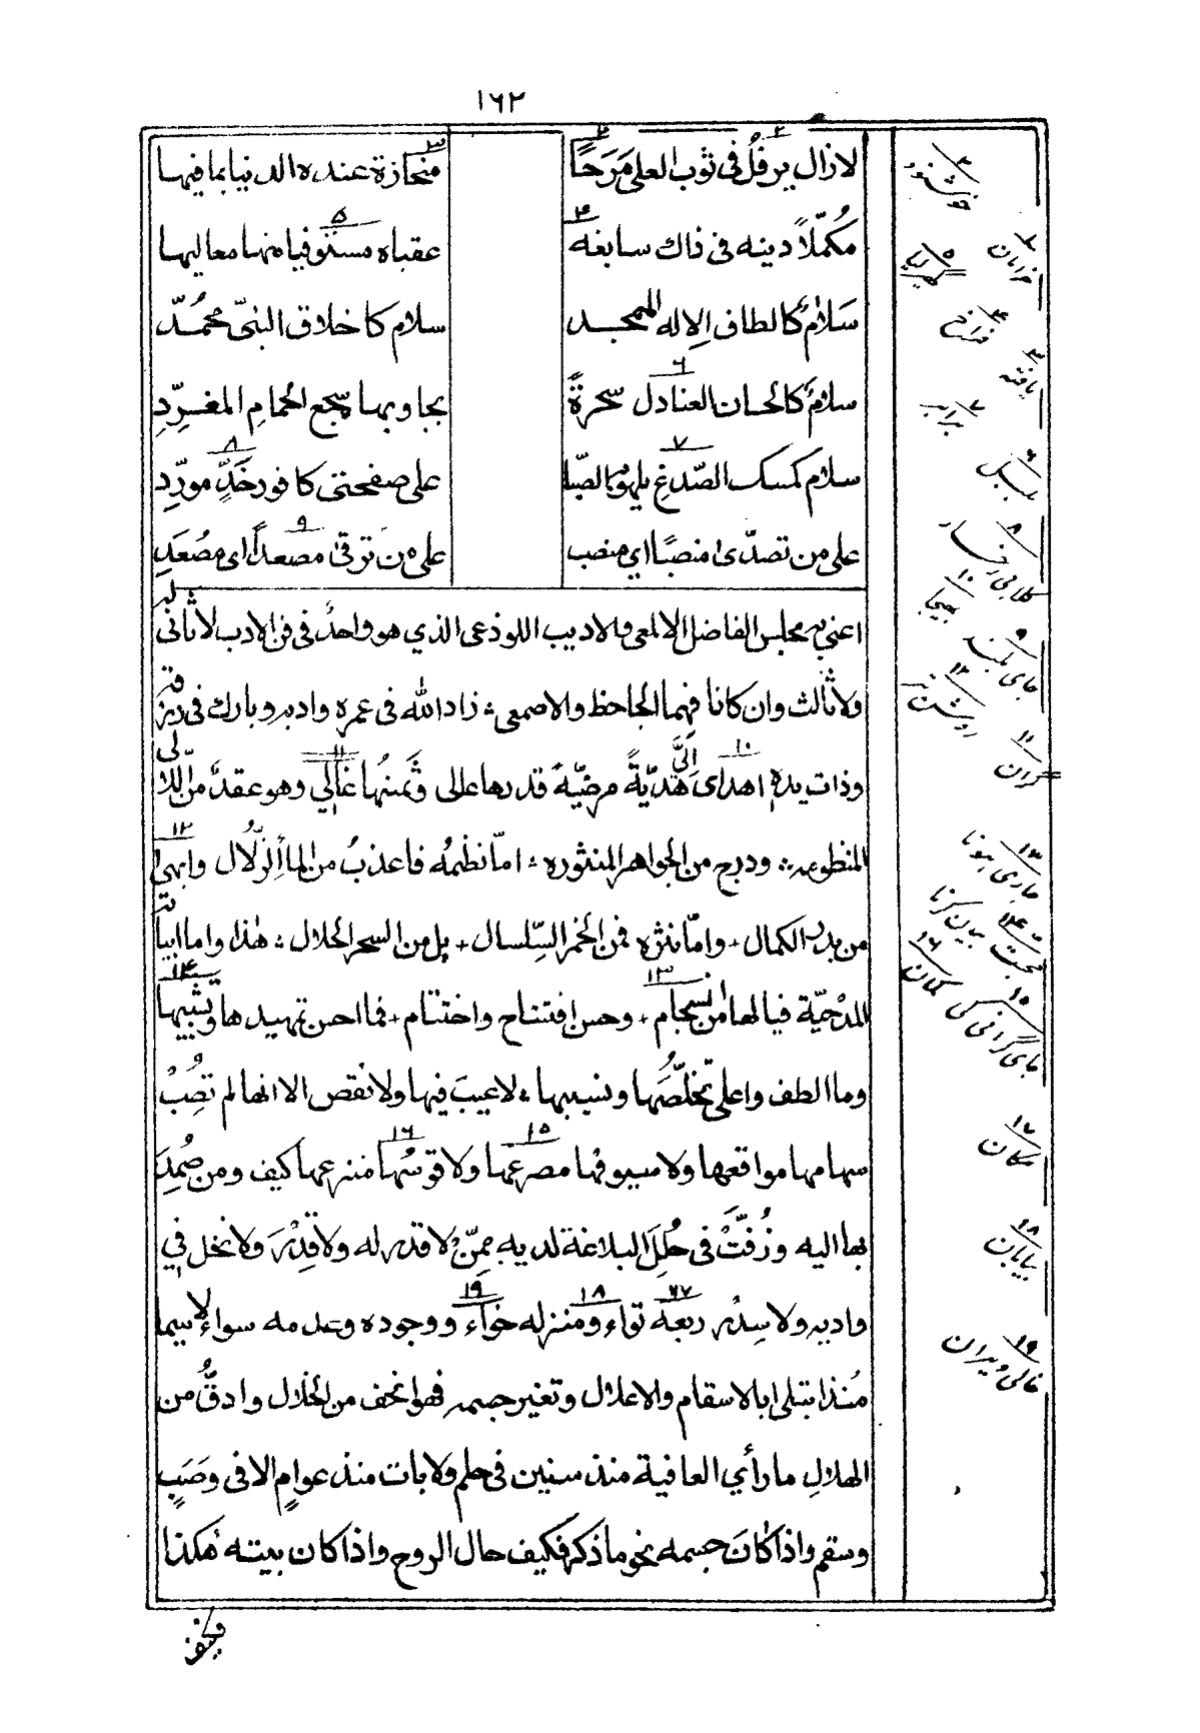 ١٦٢
لا زال يرفل فى ثوب العلى مَرَحًا منحازة عنده الدنيا بما فيها
مُكمّلاً دينه فى ذاك سابغه عقباه مستوفيا منها معاليها
سَلامٌ كالطاف الاِله الممجد سلام كاخلاق النبىّ محمُدّ
سلامٌ كالحان العنادل سحرةً يجاوبها سجع الحمامِ المغرِّدِ
سلام كمسك الصّدغ يلهو به الصّبا على صفحتى كافور خَدٍّ مورِّد
على من تصدّى منصبًا اى منصب على من ترقى مصعداً اى مصُعَدِ
اعني به مجلس الفاضل الالمعى والاديب اللوذعى الذي هو واحدٌ فى فن الادب لا ثانى له
ولا ثالث وان كانا فيهما الجاحظ والاصمعى ؛ زاد الله فى عمره وادبه وبارك فى رزقه
وذات يده اهدى اِلىَّ هَديّةً مرضيّةً قدرها عالى وثمنُها غالي وهو عقدٌ من اللالى
المنظومه ؛ ودرج من الجواهر المنثوره ؛ امّا نظمُه فاعذبُ من الماء الزّلُال وابهى
من بدر الكمال + وامّا نثره فمن الخمر السِّلسال + بل من السحر الحلال ؛ هٰذا واما ابياته
المدْحيّة فيا لها من انسجام + وحسن افتتاح واختتام + فما احسن تمهيدها وتشبيبها
وما الطف واعلى تخلّصَها ونسيبها ؛ لا عيبَ فيها ولا نقص الا انها لم تصُِبْ
سهامها مواقعها ولا سيوفها مصرعها ولا قوسُها منزعها كيف ومن صُمِدَ
بها اليه وزُفَّتْ فى حُلَلِ البلاغة لديه مِمّن لا قدر له ولا قِدْرَ ولا نخل في
واديه ولا سِدْر ربعه تواء ومنزله خواء ووجوده وعدمه سواء لا سيما
مُنذ ابتلى بالاسقام والاعلال وتغير جسمه فهو انحف من الخلال وادقُّ من
الهلالِ ما رأي العافية منذ سنين فى حلم ولا بات منذ عوامٍ الا فى وصَبٍ
وسقم واذا كَانَ جسمه نحو ما ذكر فكيف حال الروح واذا كان بيته هٰكذا
فكيف
٢ خرامان
٤ فراخ
٣ يافته
٧ برابر
٦ بلبل
٨ گلابى رخسار
١٠ بھیجا
٩ جاى بلند
١١ گران
١٣ جارى ہونا
١٤ محبت بيان كرنا
١٦ كمان
١٥ جاى گرانى كى
١٧ مكان
١٨ بيابان
١٩ خالى ويران